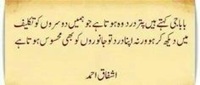 بابا جی کہتے ہیں پتر درد وہ ہوتا ہے جو ہمیں دوسروں کو تکلیف
میں دیکھ کر ہو ورنہ اپنا درد تو جانوروں کو بھی محسوس ہوتا ہے
اشفاق احمد